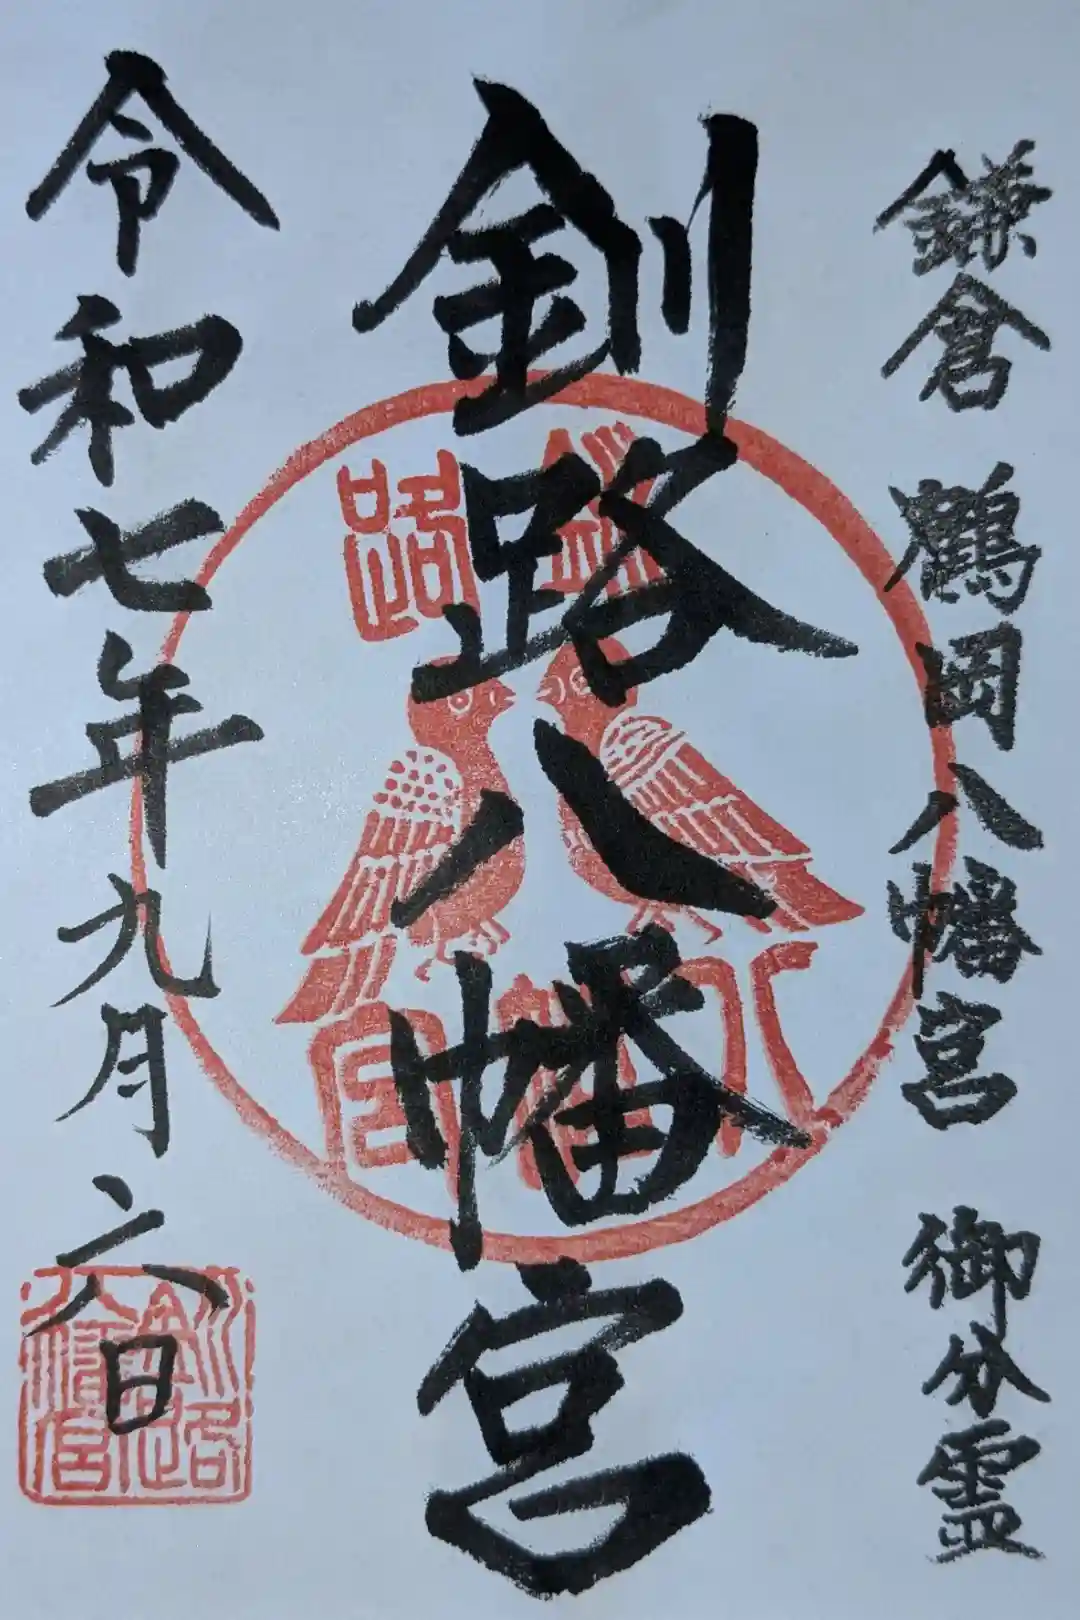 鎌倉 鶴岡八幡宮 御分霊
釧路八幡宮
令和七年九月六日
釧路
八幡宮
釧路
八幡宮